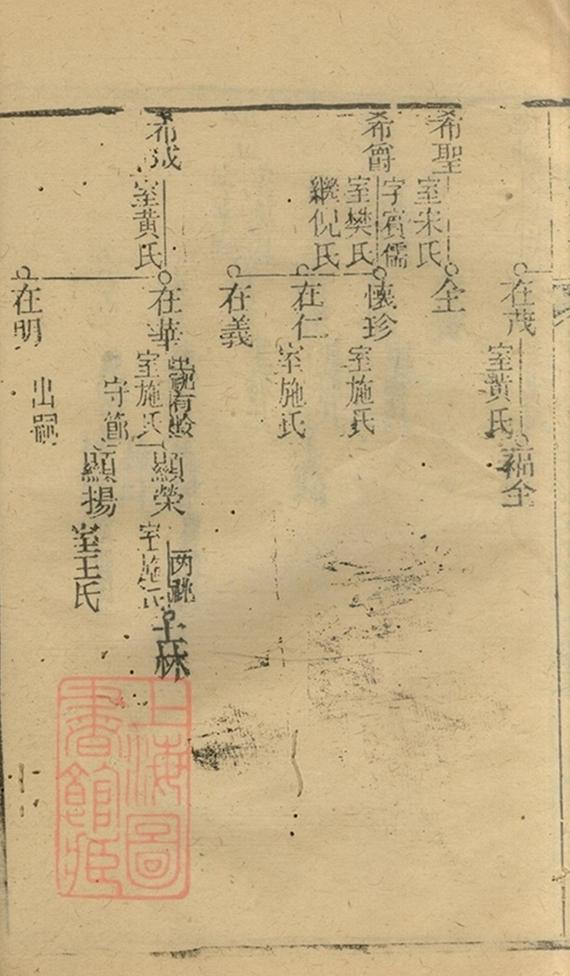 在茂
室黄氏
福全
希聖
室宋氏
全
希爵
字賓儒
室樊氏
繼倪氏
懷珍
室施氏
在仁
室施氏
在義
希成
室黄氏
在華
室施氏
守節
顯榮
室施氏
士林
顯揚
室王氏
在明
出嗣
上海圖
書館藏